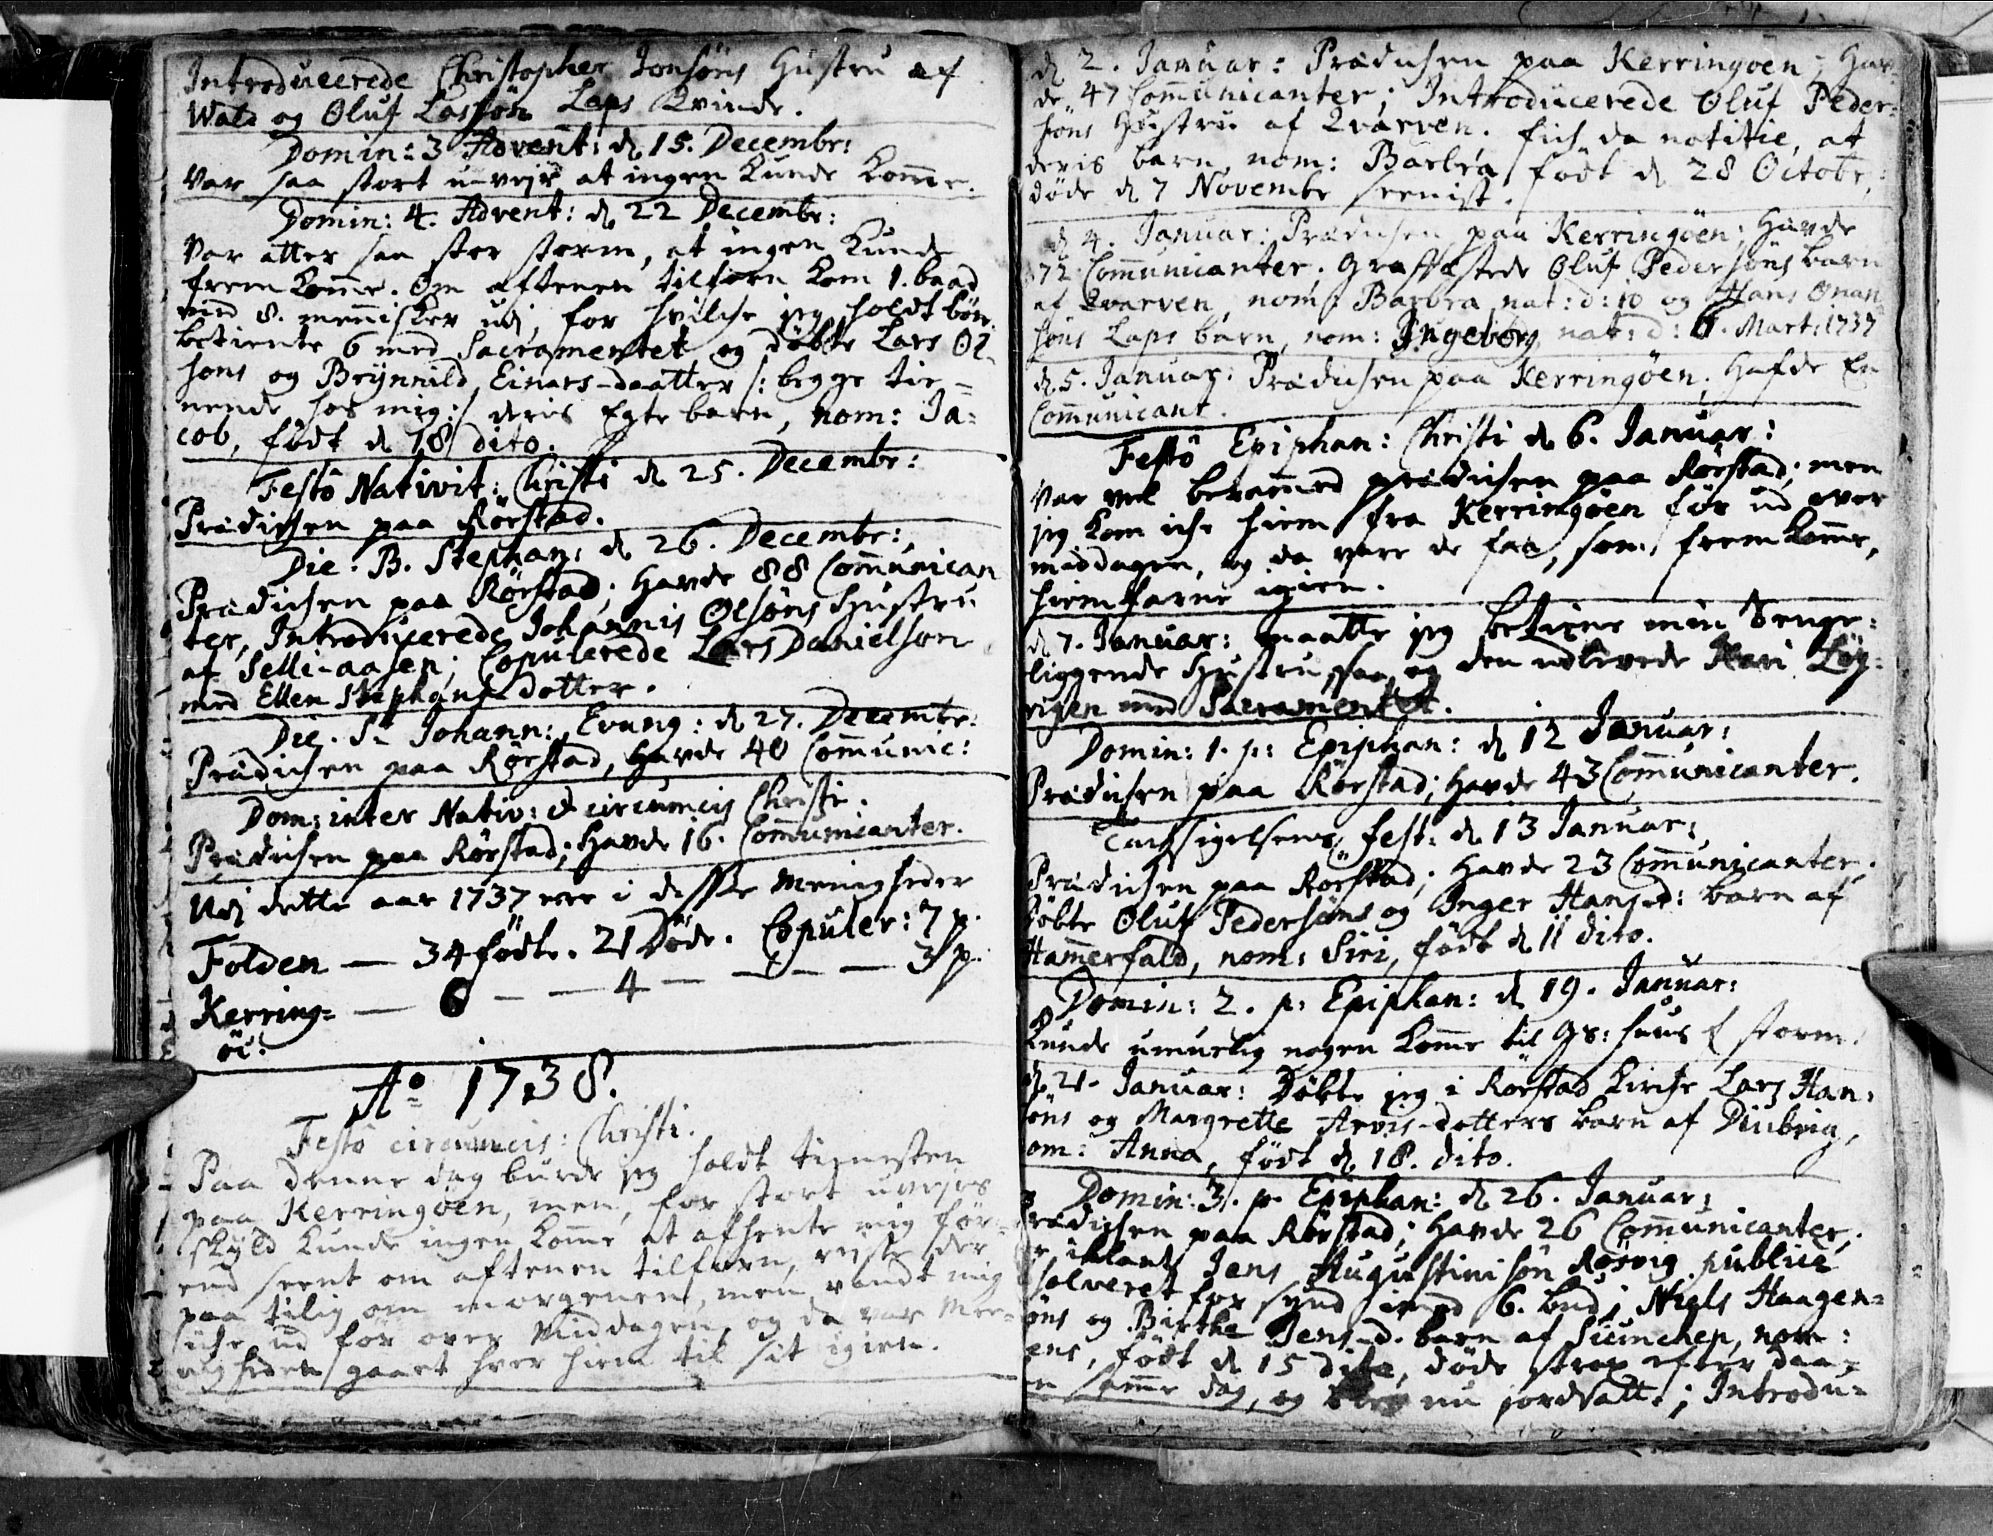 Introducerede Christopher Jonsöns Hustru af
Wald og Oluf Lassön Laps Kvinde.
Domin: 3 Advent: d. 15. Decembr:
Var saa stort u-vejr at ingen kunde komme.
Domin: 4. Advent: d. 22 Decembr:
Var atter saa stor storm, at ingen kunde
frem komme. Om aftenen tilforn kom 1. baad
med 8. mennisker udj, for hvilche jeg holdt bön,
betiente 6 med Sacramentet og döbte Lars Ol-
söns og Brÿnnild Einars-daatter /: begge tie-
nende hos mig :/ deris Egte barn, nom: Ja=
cob, födt d. 18 dito.
Festô Nativit: Christi d. 25. Decembr:
Prædichen paa Rörstad.
Die. B. Stephan: d. 26. Decembr:
Prædichen paa Rörstad; Havde 88 Communican
ter, Introducerede Johannis Olsöns Hustru
af Selli-aasen; Copulerede Lars Danielsön
med Ellen Stephans-dotter.
Die. St. Johann: Evang: d. 27. Decembr:
Prædichen paa Rörstad, havde 40 Communic:
Dom: inter Nativ: & circumcis Christi.
Prædichen paa Rörstad; Havde 16. Communicanter.
Udj dette aar 1737 ere i disse Menigheder
Folden — 34 födte. 21 Döde. Copuler: 7 p.
Kerring= — 6 — — 4 — — — 3 p.
öe:
Aº 1738.
Festô circumcis: Christi.
Paa denne dag burde jeg holdt tienesten
paa Kerringöen, men, for stort uvejrs
skÿld kunde ingen komme at afhente mig för-
end seent om aftenen tilforn, rejste der
paa tilig om morgenen, men vandt mig
iche ud för over Middagen, og da var Men-
nigheden gaaet hver hiem til sit igien.
d. 2. Januar: Prædichen paa Kerringöen; Hav-
de 47 Communicanter; Introducerede Oluf Peder-
söns Hustru af Qvarven. fich da notitie, at
deris barn, nom: Barbra födt d. 28 Octobr:
döde d. 7 Novembr seenist.
d. 4. Januar: Prædichen paa Kerringöen; Havde
72 Communicanter. Graffæstede Oluf Pedersöns barn
af Qvarven, nom: Barbra nat: d: 10 og Hans Onan
söns Laps barn, nom: Ingeborg nat: d: 6. Mart: 1737
d. 5. Januar: Prædichen paa Kerringöen. Hafde En
Communicant.
Festô Epiphan: Christi d. 6. Januar:
Var vel berammed prædichen paa Rörstad; men
jeg kom iche hiem fra Kerringöen för ud over
middagen, og da vare de faa, som frem komme,
hiemfarne igien.
d. 7. Januar: maatte jeg betiene min Senge=
liggende Hustru saa og den udlevede Kari Löy-
rigen med Sacramentet.
Domin: 1. p: Epiphan: d. 12 Januar:
Prædichen paa Rörstad; Havde 43 Communicanter.
Tachsigelsens Fest: d. 13 Januar:
Prædichen paa Rörstad; Havde 23 Communicanter;
döbte Oluf Pedersöns og Inger Hans-d: barn af
Hammerfald, nom: Siri, födt d. 11 dito.
Domin: 2. p: Epiphan: d. 19. Januar:
Kunde umuelig nogen komme til Gs: huus f storm.
d. 21. Januar: Döbte jeg i Rörstad kirche Lars Han-
söns og Margrette Arvis-dotters barn af Diubvig,
om: Anna, födt d. 18. dito.
Domin: 3. p. Epiphan: d. 26. Januar:
rædichen paa Rörstad; Havde 26 Communicanter,
iblant Jens Augustinisön Rösvig publicè
solveret for synd imod 6. bud; Niels Haagen=
öns og Birthe Jens-d. barn af Siunchen, nom:
ens, födt d. 15 dito, döde strax efter daa-
n samme dag, og blev nu jordsatt.; Introdu-